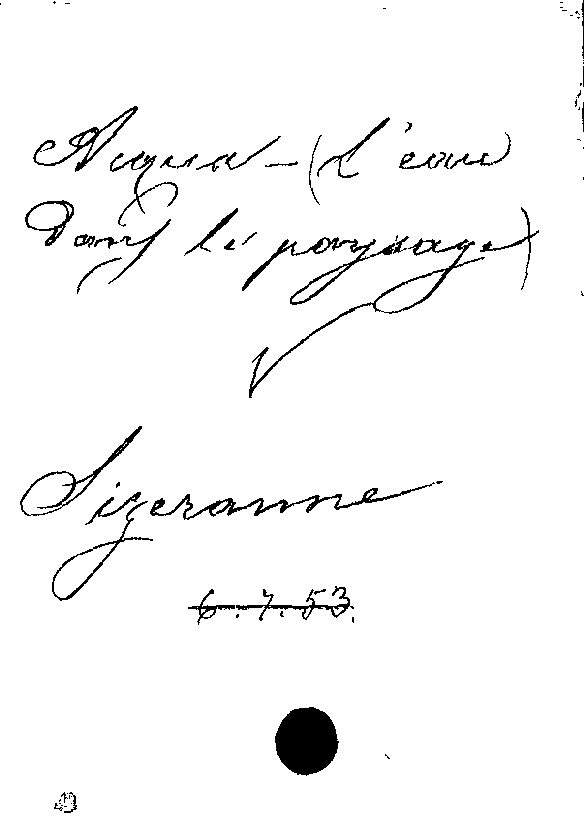 Acqua - (L'eau
dans le paysage)
Sizeranne
6.7.53.